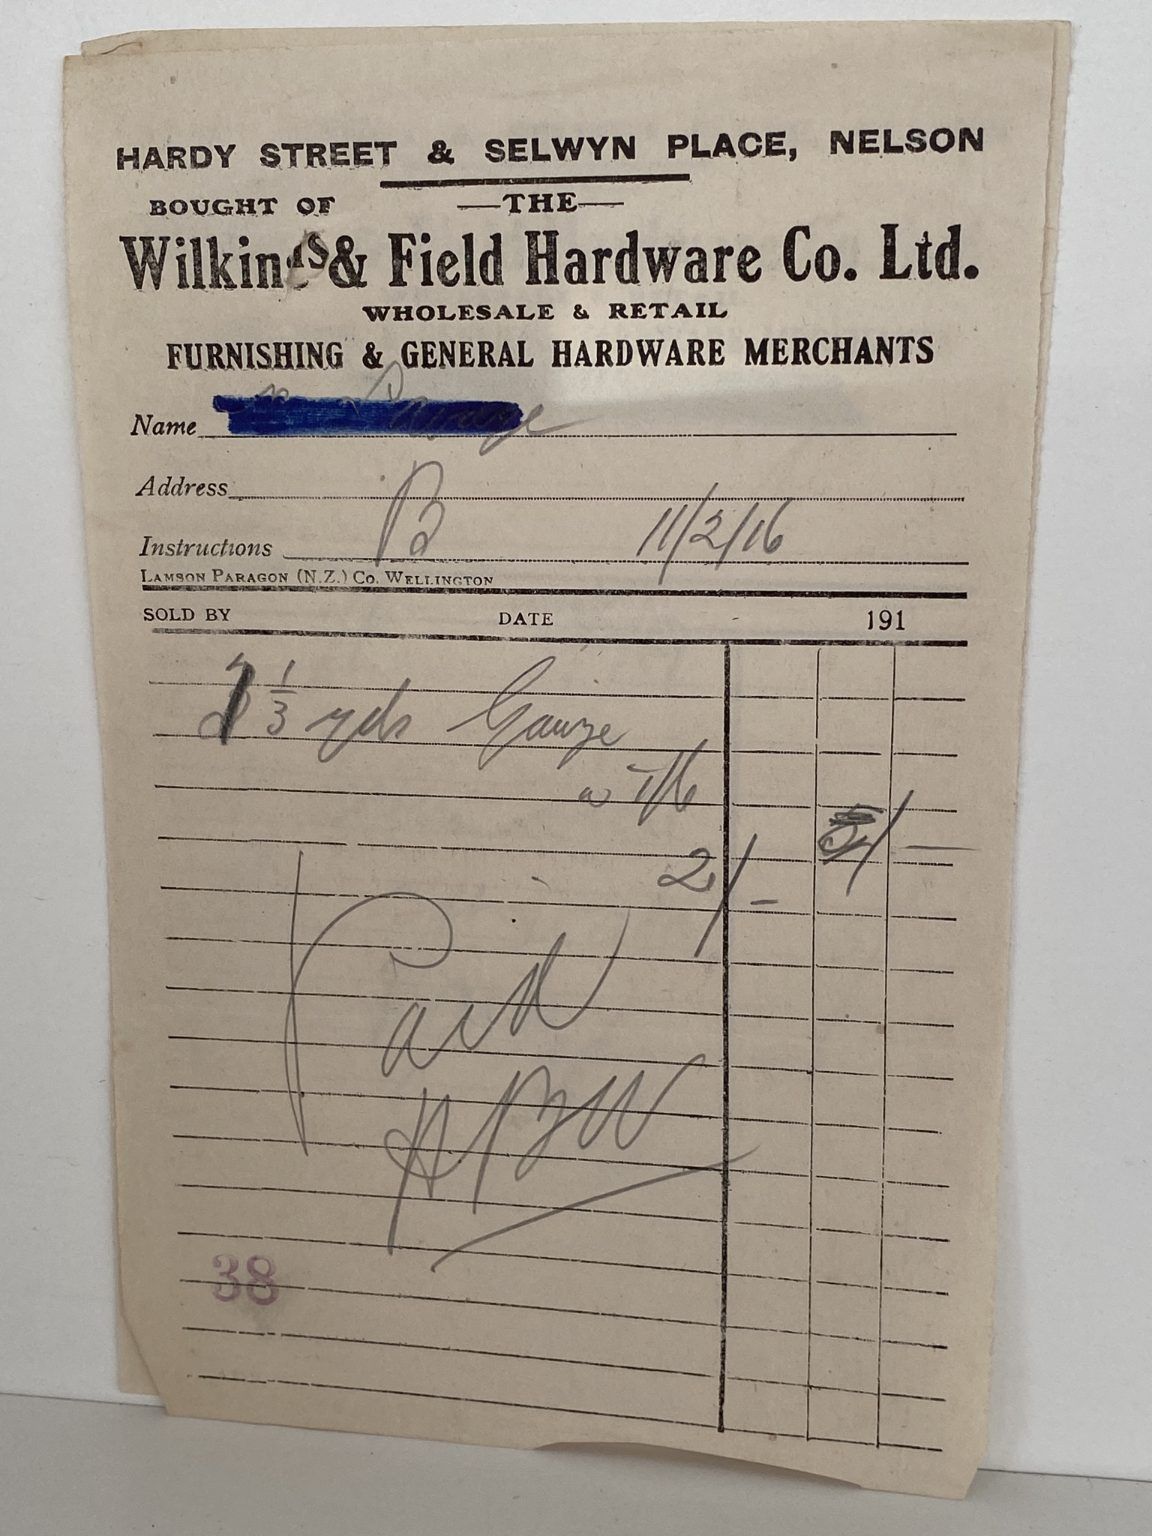 HARDY STREET & SELWYN PLACE, NELSON
BOUGHT OF —THE—
Wilkins & Field Hardware Co. Ltd.
WHOLESALE & RETAIL
FURNISHING & GENERAL HARDWARE MERCHANTS
Name
Address
Instructions B 11/2/16
LAMSON PARAGON (N.Z.) CO. WELLINGTON
SOLD BY DATE 191
1 1/3 yds Gauze
1/6
2/-
Paid
38